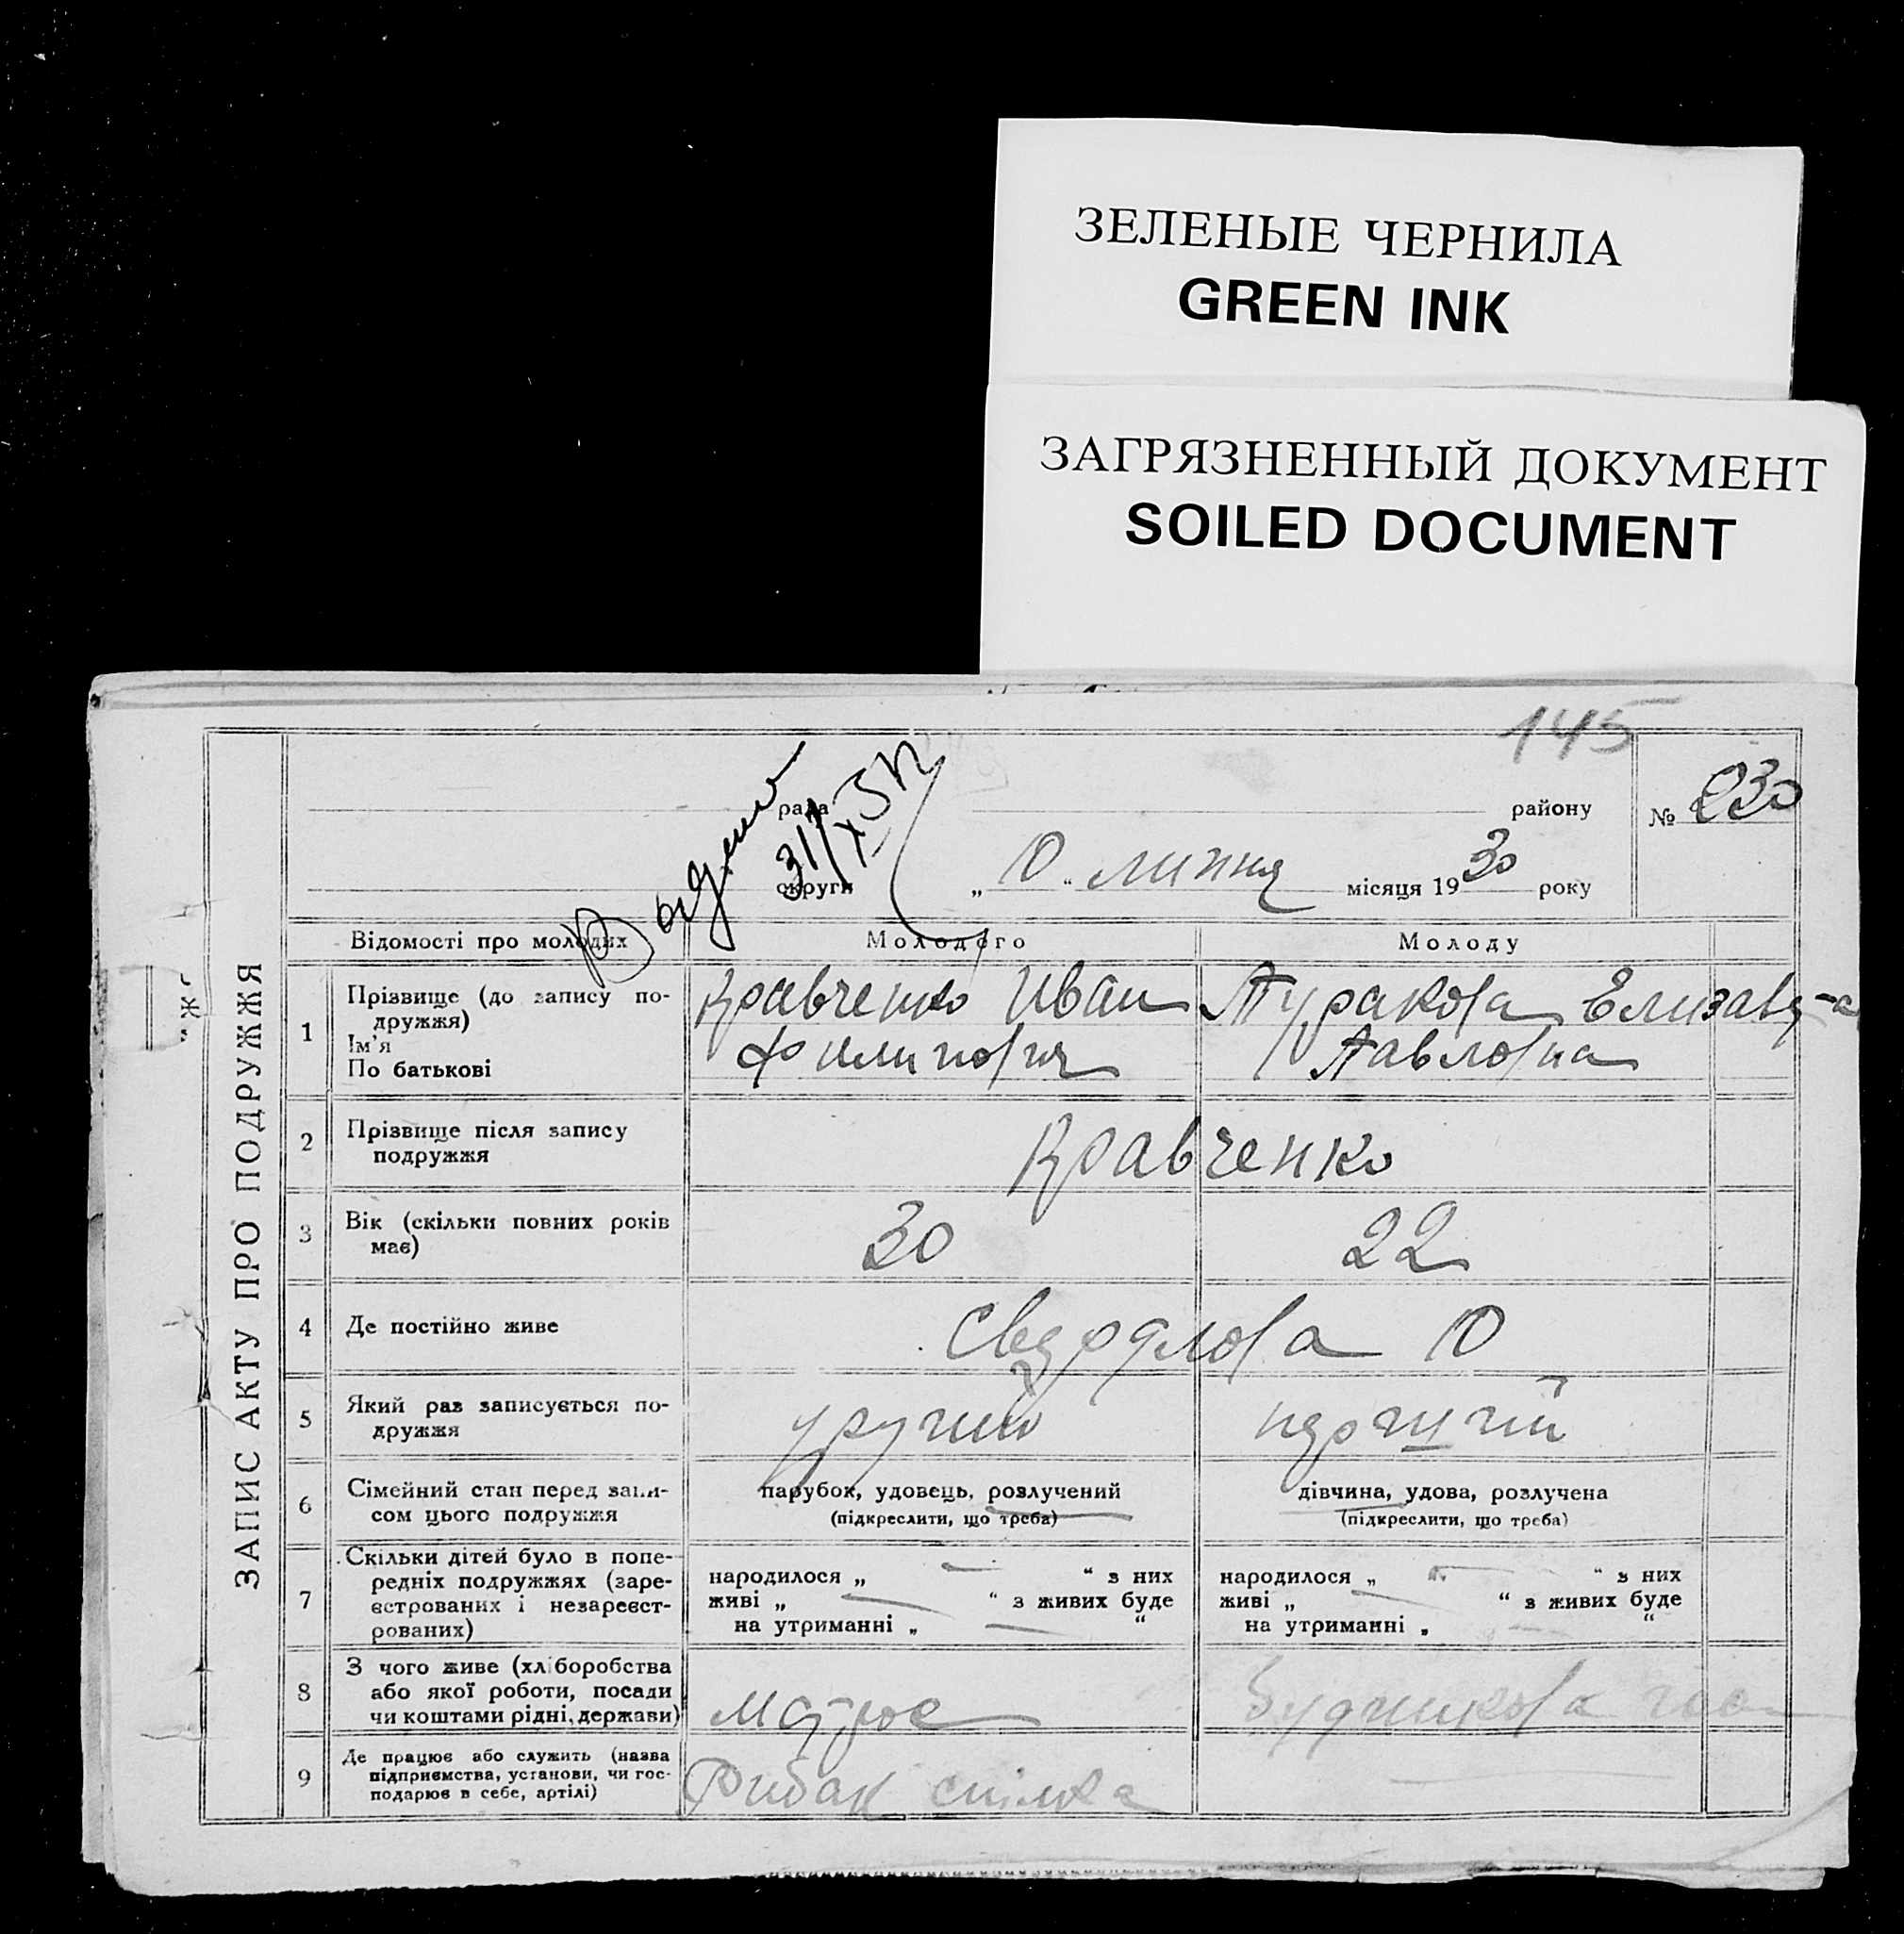 ЗЕЛЕНЫЕ ЧЕРНИЛА
GREEN INK
ЗАГРЯЗНЕННЫЙ ДОКУМЕНТ
SOILED DOCUMENT
145
рада района № 230
округи „10“ липня місяця 1930 року
ЗАПИС АКТУ ПРО ПОДРУЖЖЯ
Відомості про молодих Молодого Молоду
1 Прізвище (до запису по-
дружжя)
Ім'я
По батькові
Кравченко Иван
Филипович
Туракова Елизавет-а
Павловна
2 Прізвище після запису
подружжя
Кравченко
3 Вік (скільки повних років
має)
30 22
4 Де постійно живе
Свердлова 10
5 Який раз записується по-
дружжя
другий перший
6 Сімейний стан перед запи-
сом цього подружжя
парубок, удовець, розлучений
(підкреслити, що треба)
дівчина, удова, розлучена
(підкреслити, що треба)
7 Скільки дітей було в попе-
редніх подружжях (заре-
єстрованих і незареєст-
рованих)
народилося „ — “ з них
живі „ — “ з живих буде
на утриманні „ — “
народилося „ — “ з них
живі „ — “ з живих буде
на утриманні „ — “
8 З чого живе (хліборобства
або якої роботи, посади
чи коштами рідні, держави)
матрос
9 Де працює або служить (назва
підприємства, установи, чи гос-
подарює в себе, артілі)
Рибак спілка